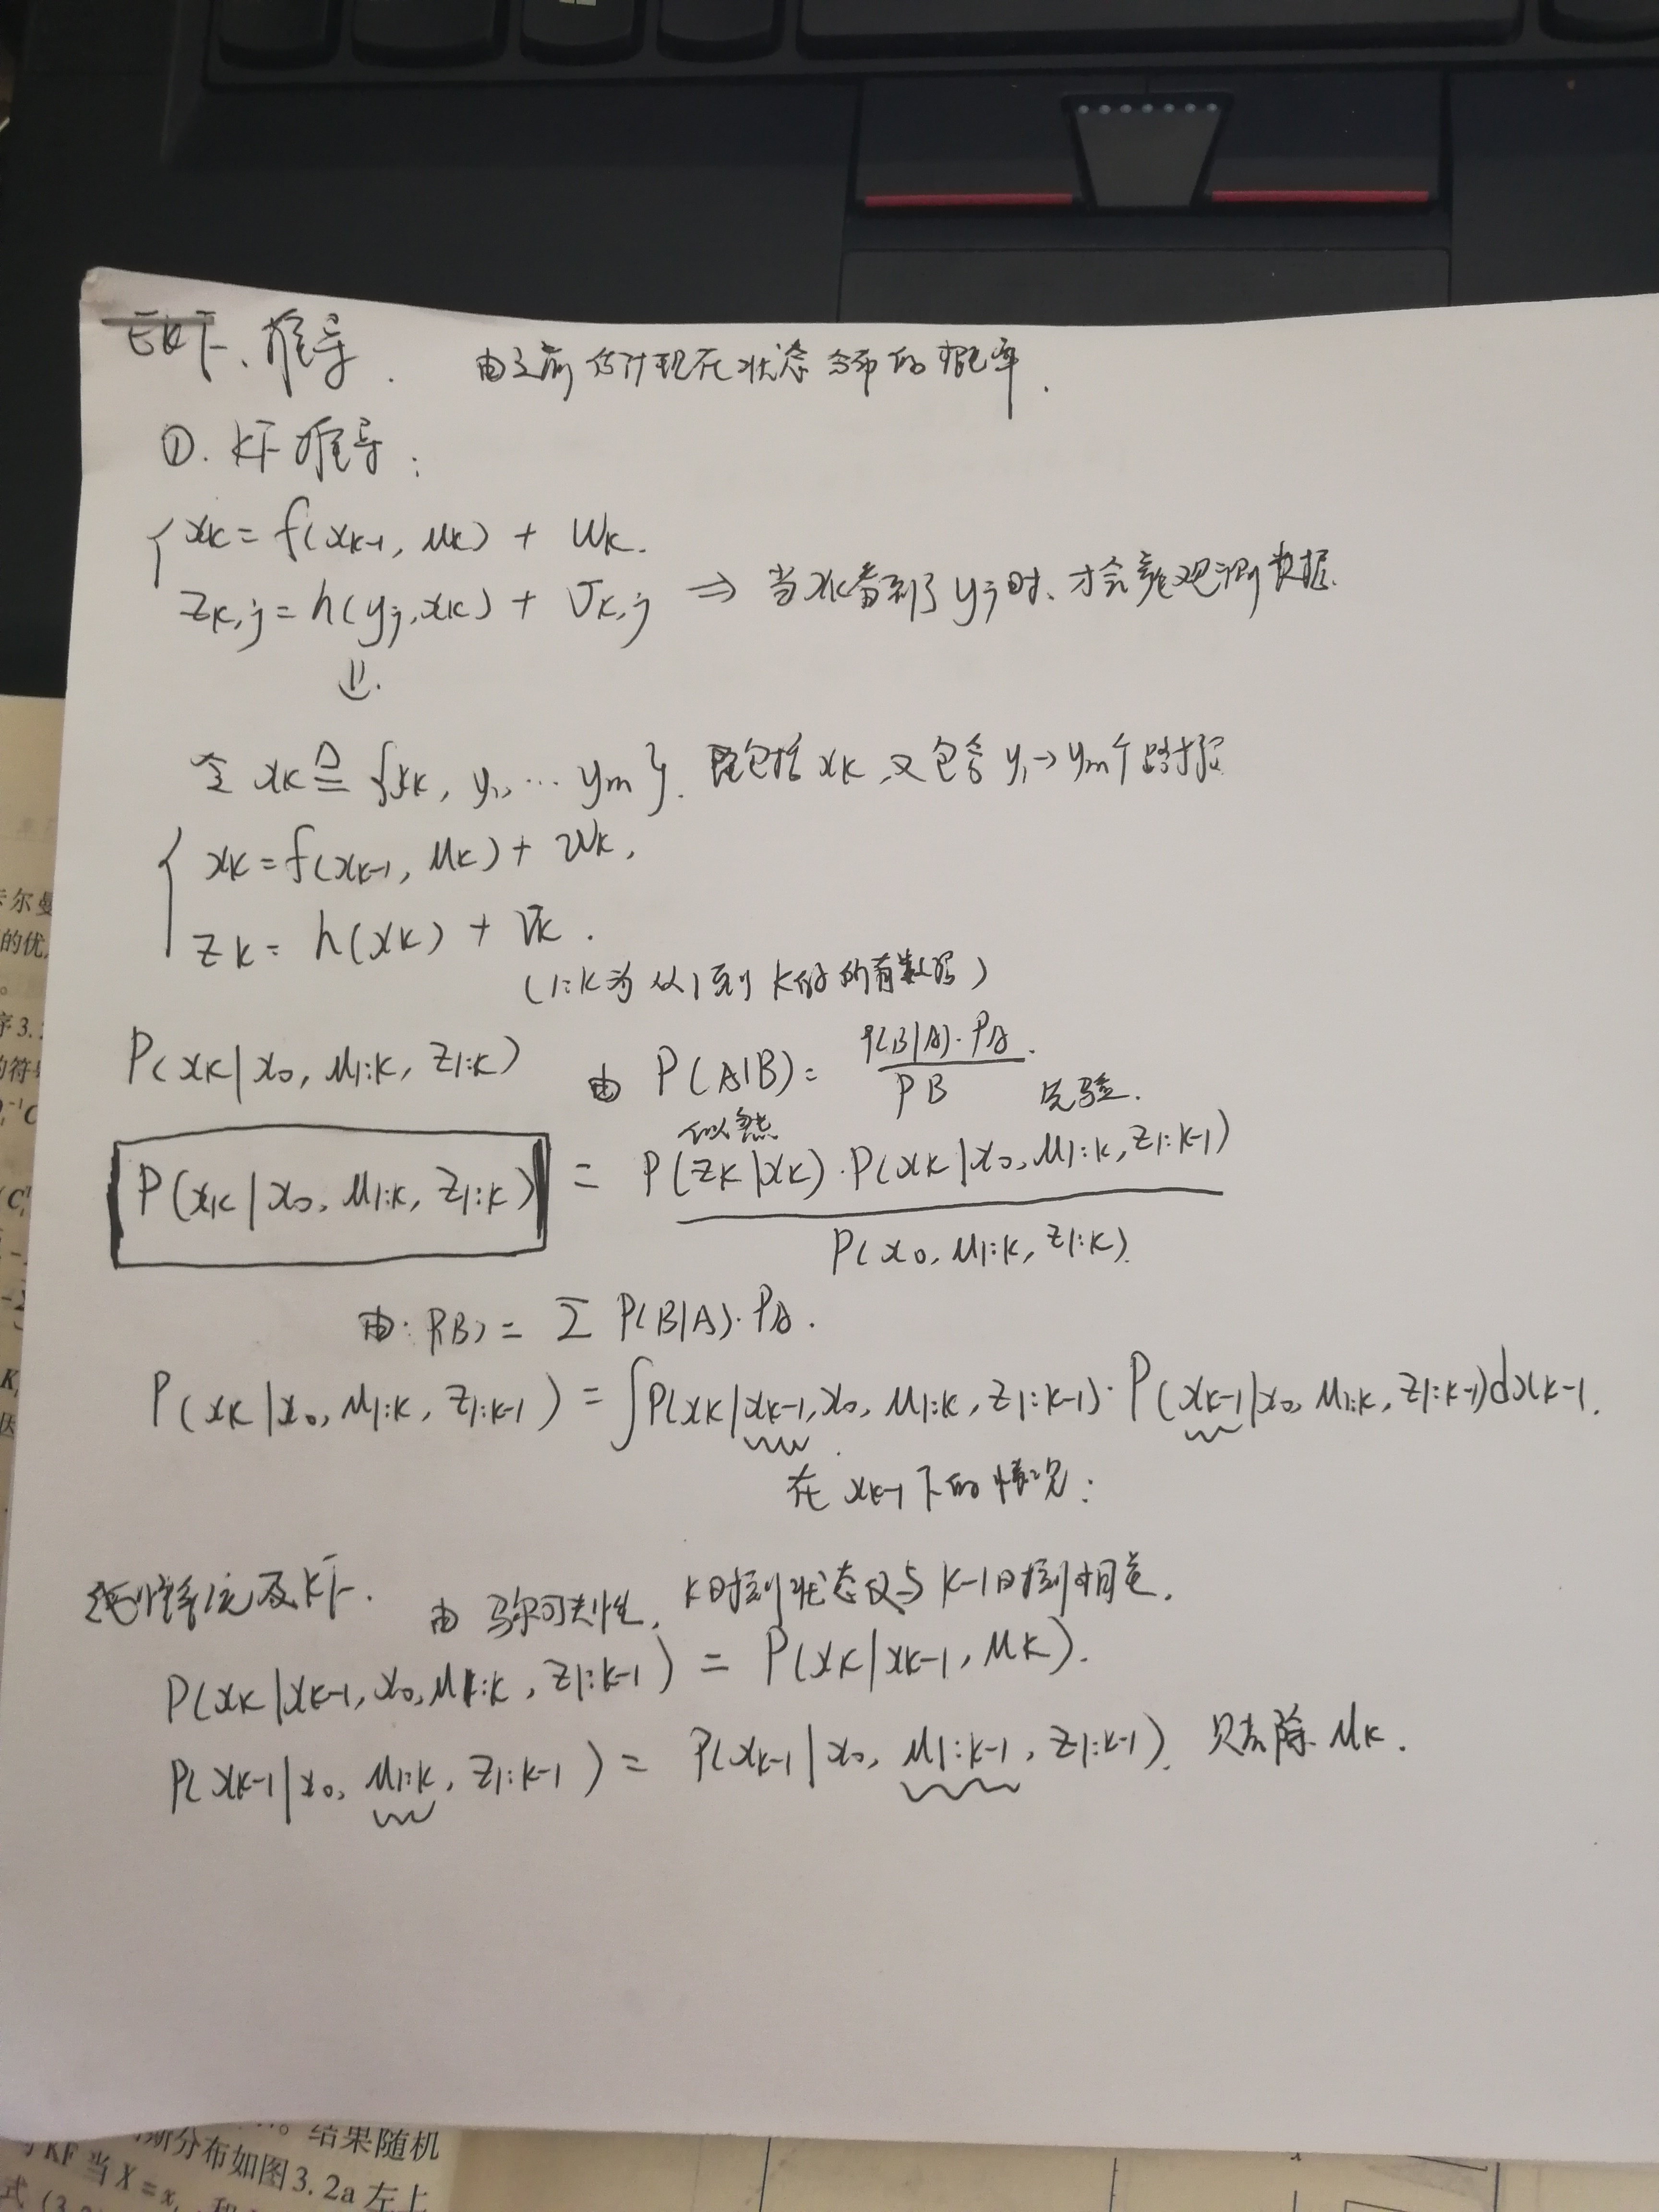 EKF、推导. 由之前估计现在状态分布的概率.
①. KF推导:
xk = f(xk-1, uk) + wk.
zk,j = h(yj, xk) + vk,j ⇒ 当xk看到了yj时、才会产生观测数据.
⇓.
令 xk ≜ {xk, y1, … ym}. 既包括xk,又包含y1→ym个路标
xk = f(xk-1, uk) + wk,
zk = h(xk) + vk.
(1:k为从1到k的所有数据)
P(xk|x0, u1:k, z1:k) 由 P(A|B) = P(B|A)·PA / PB.
似然 先验.
P(xk|x0, u1:k, z1:k) = P(zk|xk)·P(xk|x0, u1:k, z1:k-1) / P(x0, u1:k, z1:k).
由: P(B) = Σ P(B|A)·PA.
P(xk|x0, u1:k, z1:k-1) = ∫P(xk|xk-1, x0, u1:k, z1:k-1)·P(xk-1|x0, u1:k, z1:k-1)dxk-1.
在xk-1下的情况:
线性系统及KF. 由马尔可夫性, k时刻状态仅与k-1时刻相关.
P(xk|xk-1, x0, u1:k, z1:k-1) = P(xk|xk-1, uk).
P(xk-1|x0, u1:k, z1:k-1) = P(xk-1|x0, u1:k-1, z1:k-1). 只去除uk.
卡尔曼
的优
序3.
的符
K
因
。结果随机
斯分布如图3.2a左上
KF当X=x,
式(3.